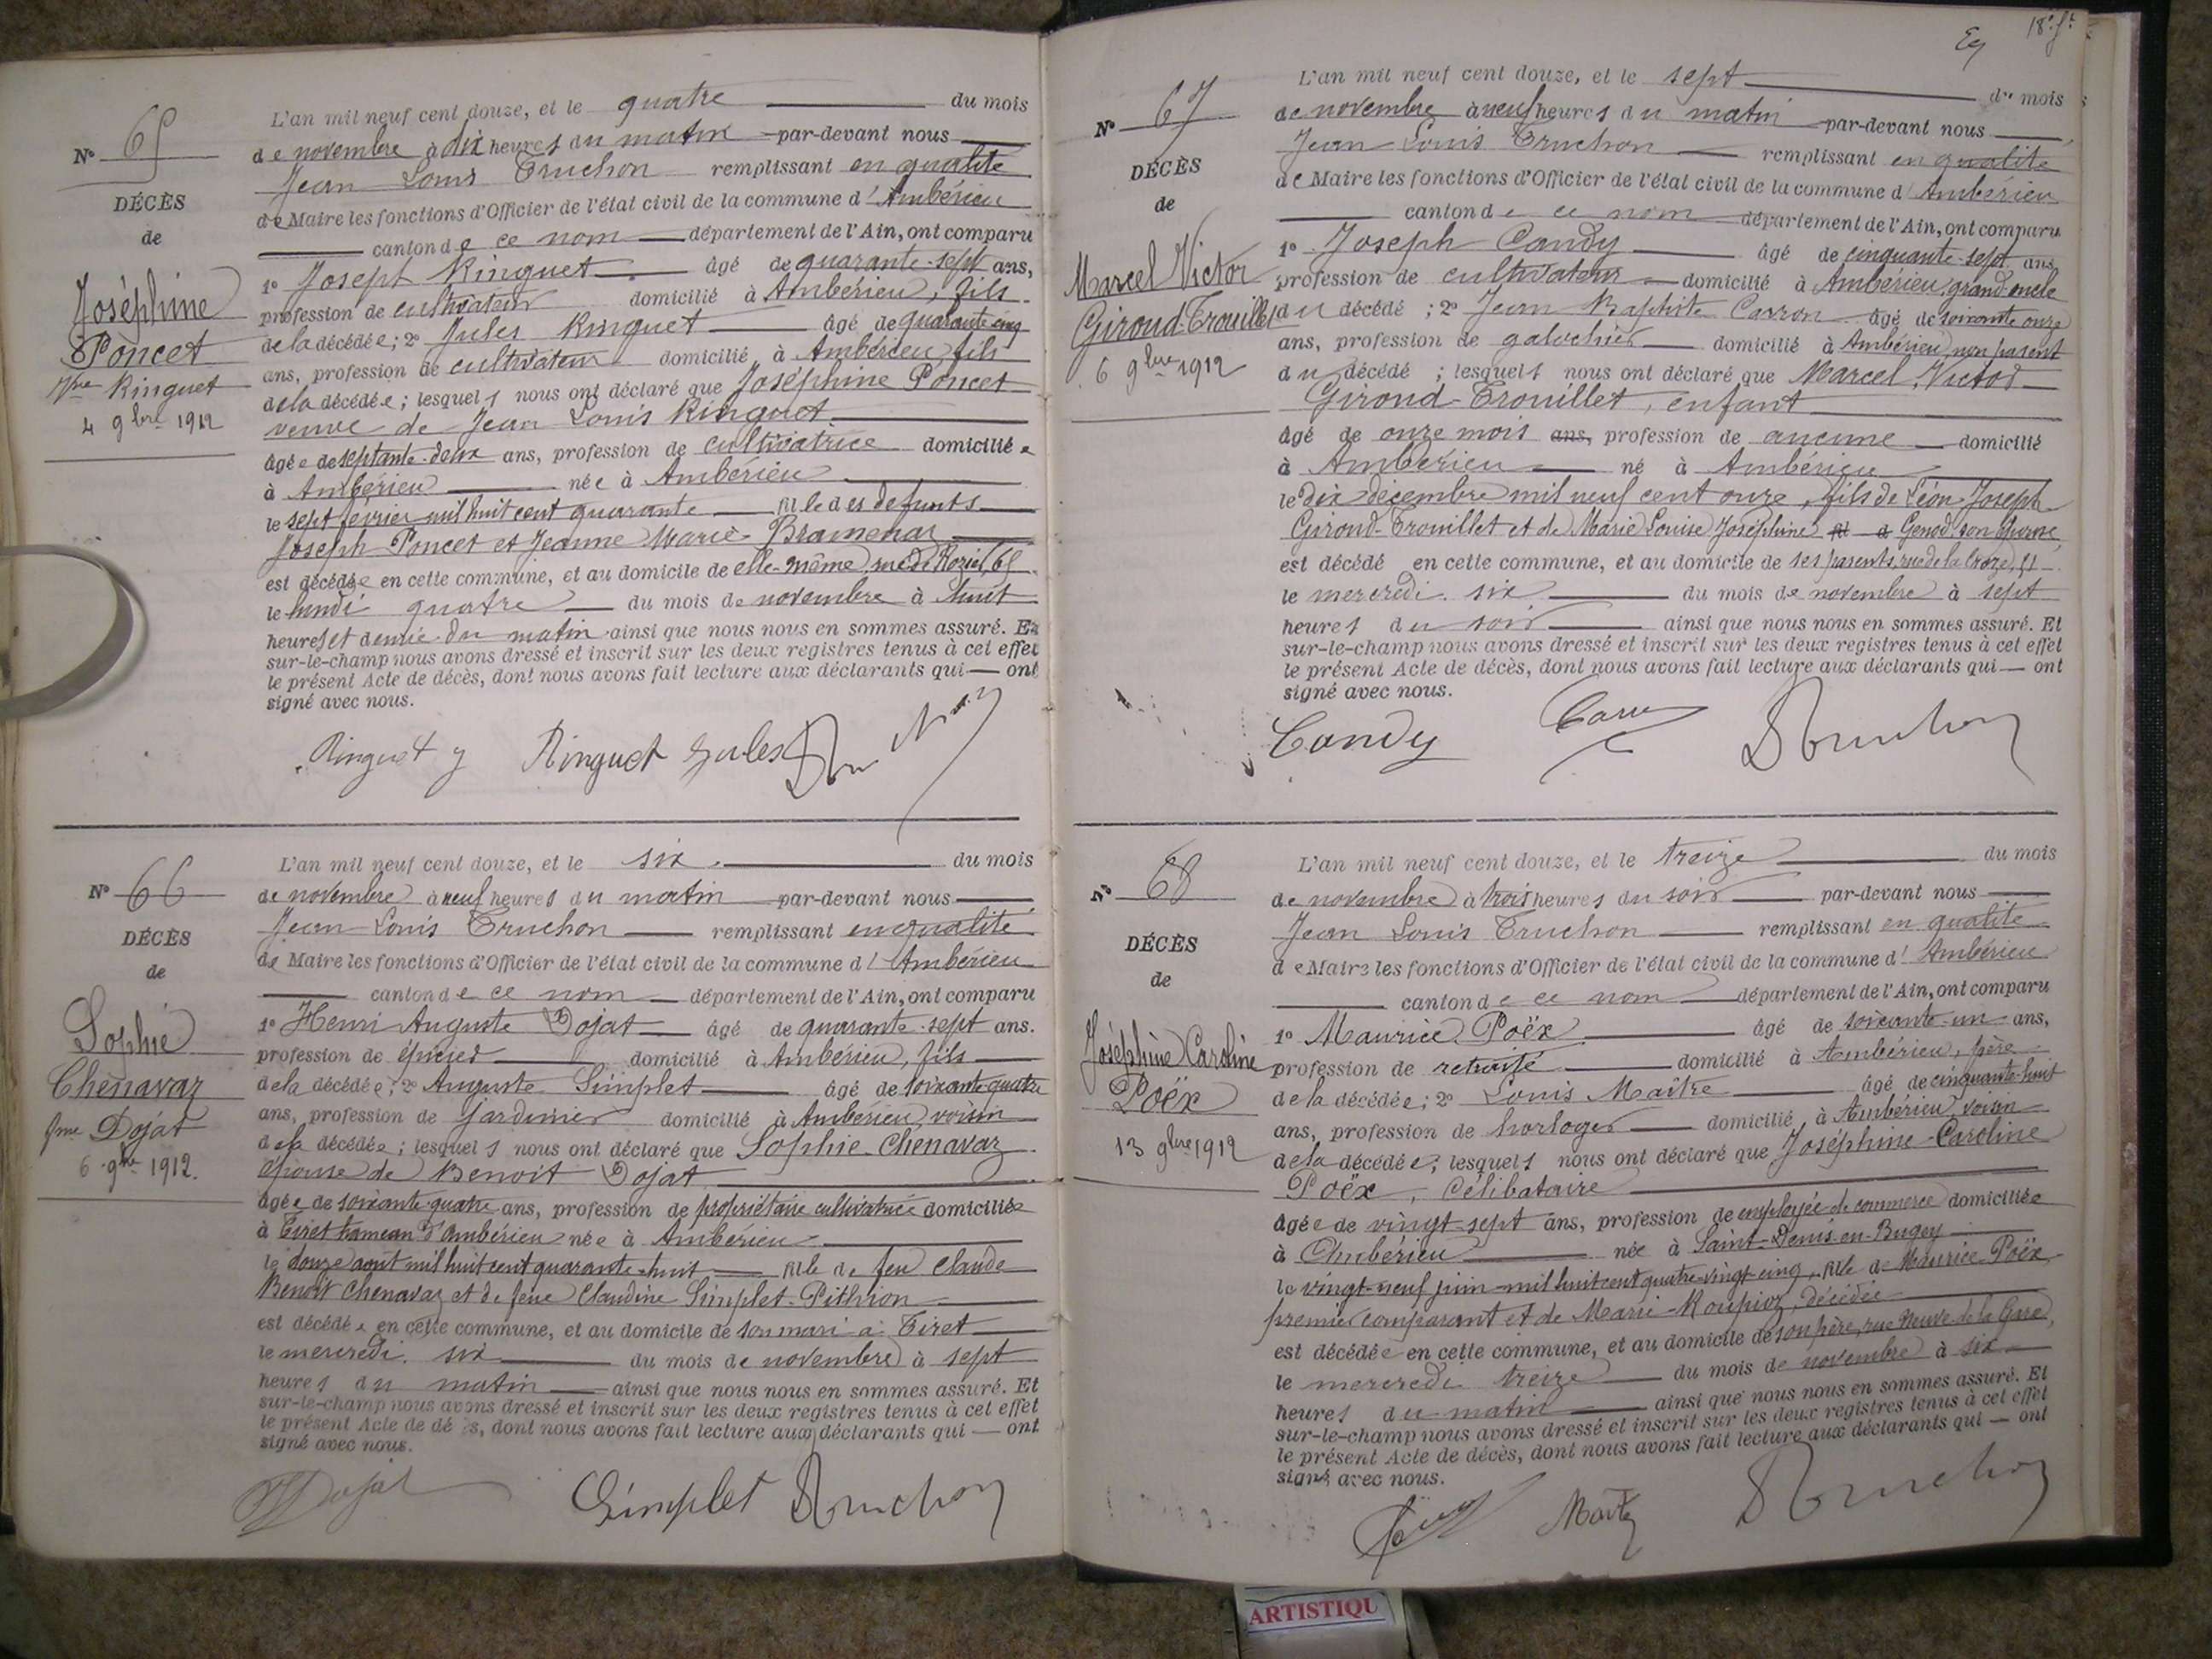 N° 65
DÉCÈS
de
Joséphine
Poncet
Vve Ringuet
4 9bre 1912
L'an mil neuf cent douze, et le quatre du mois
de novembre à dix heures du matin par-devant nous
Jean Louis Truchon remplissant en qualité
de Maire les fonctions d'Officier de l'état civil de la commune d'Ambérieu
canton de ce nom département de l'Ain, ont comparu
1° Joseph Ringuet âgé de quarante-sept ans,
profession de cultivateur domicilié à Ambérieu, fils
de la décédée; 2° Jules Ringuet âgé de quarante cinq
ans, profession de cultivateur domicilié à Ambérieu, fils
de la décédée; lesquels nous ont déclaré que Joséphine Poncet
veuve de Jean Louis Ringuet
âgée de septante-deux ans, profession de cultivatrice domiciliée
à Ambérieu née à Ambérieu
le sept février mil huit cent quarante fille des défunts
Joseph Poncet et Jeanne Marie Bramenar
est décédée en cette commune, et au domicile de elle-même, rue de 65
le lundi quatre du mois de novembre à huit
heures et demie du matin ainsi que nous nous en sommes assuré. Et
sur-le-champ nous avons dressé et inscrit sur les deux registres tenus à cet effet
le présent Acte de décès, dont nous avons fait lecture aux déclarants qui — ont
signé avec nous.
Ringuet J Ringuet Jules
N° 66
DÉCÈS
de
Sophie
Chenavaz
fme Dojat
6 9bre 1912.
L'an mil neuf cent douze, et le six du mois
de novembre à neuf heures du matin par-devant nous
Jean Louis Truchon remplissant en qualité
de Maire les fonctions d'Officier de l'état civil de la commune d'Ambérieu
canton de ce nom département de l'Ain, ont comparu
1° Henri Auguste Dojat âgé de quarante-sept ans.
profession de épicier domicilié à Ambérieu, fils
de la décédée; 2° Auguste Simplet âgé de soixante quatre
ans, profession de jardinier domicilié à Ambérieu, voisin
de la décédée; lesquels nous ont déclaré que Sophie Chenavaz
épouse de Benoit Dojat
âgée de soixante-quatre ans, profession de propriétaire cultivatrice domiciliée
à Tiret hameau d'Ambérieu née à Ambérieu
le douze août mil huit cent quarante-huit fille de feu Claude
Benoit Chenavaz et de feue Claudine Simplet-Pithion
est décédée en cette commune, et au domicile de son mari à Tiret
le mercredi six du mois de novembre à sept
heures du matin ainsi que nous nous en sommes assuré. Et
sur-le-champ nous avons dressé et inscrit sur les deux registres tenus à cet effet
le présent Acte de décès, dont nous avons fait lecture aux déclarants qui — ont
signé avec nous.
Dojat Simplet Truchon
18e ft
N° 67
DÉCÈS
de
Marcel Victor
Giroud-Trouillet
6 9bre 1912
L'an mil neuf cent douze, et le sept du mois
de novembre à neuf heures du matin par-devant nous
Jean Louis Truchon remplissant en qualité
de Maire les fonctions d'Officier de l'état civil de la commune d'Ambérieu
canton de ce nom département de l'Ain, ont comparu
1° Joseph Candy âgé de cinquante-sept ans
profession de cultivateur domicilié à Ambérieu, grand-oncle
du décédé; 2° Jean Baptiste Carron âgé de soixante onze
ans, profession de galochier domicilié à Ambérieu, non parent
du décédé; lesquels nous ont déclaré que Marcel Victor
Giroud-Trouillet, enfant
âgé de onze mois ans, profession de aucune domicilié
à Ambérieu né à Ambérieu
le dix décembre mil neuf cent onze, fils de Léon Joseph
Giroud-Trouillet et de Marie Louise Joséphine Genod, son épouse,
est décédé en cette commune, et au domicile de ses parents, rue de la Croze, 51
le mercredi six du mois de novembre à sept
heures du soir ainsi que nous nous en sommes assuré. Et
sur-le-champ nous avons dressé et inscrit sur les deux registres tenus à cet effet
le présent Acte de décès, dont nous avons fait lecture aux déclarants qui — ont
signé avec nous.
Candy Carron Truchon
N° 68
DÉCÈS
de
Joséphine Caroline
Poëx
13 9bre 1912
L'an mil neuf cent douze, et le treize du mois
de novembre à trois heures du soir par-devant nous
Jean Louis Truchon remplissant en qualité
de Maire les fonctions d'Officier de l'état civil de la commune d'Ambérieu
canton de ce nom département de l'Ain, ont comparu
1° Maurice Poëx âgé de soixante-un ans,
profession de retraité domicilié à Ambérieu, père
de la décédée; 2° Louis Maître âgé de cinquante-huit
ans, profession de horloger domicilié à Ambérieu, voisin
de la décédée; lesquels nous ont déclaré que Joséphine-Caroline
Poëx, Célibataire
âgée de vingt-sept ans, profession de employée de commerce domiciliée
à Ambérieu née à Saint-Denis-en-Bugey
le vingt-neuf juin mil huit cent quatre-vingt-cinq, fille de Maurice Poëx
premier comparant et de Marie Roupioz, décédée
est décédée en cette commune, et au domicile de son père, rue Neuve de la Gare,
le mercredi treize du mois de novembre à six
heures du matin ainsi que nous nous en sommes assuré. Et
sur-le-champ nous avons dressé et inscrit sur les deux registres tenus à cet effet
le présent Acte de décès, dont nous avons fait lecture aux déclarants qui — ont
signé avec nous.
Poëx Maître Truchon
ARTISTIQU